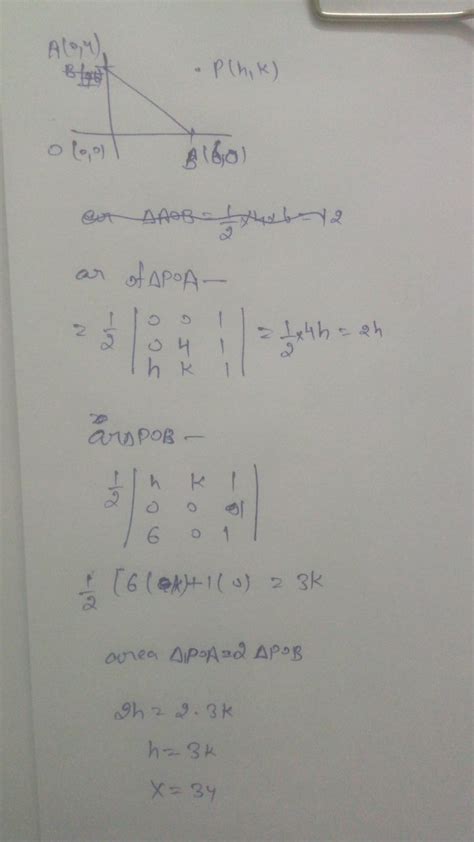 A(0,4)
P(h,k)
O(0,0)
B(6,0)
ar ΔAOB = 1/2 × 4 × 6 = 12
ar of ΔPOA —
= 1/2 | 0 0 1 | = 1/2 × 4h = 2h
0 4 1
h k 1
ar ΔPOB —
1/2 | h k 1 |
0 0 1
6 0 1
1/2 [6(k)+1(0) = 3k
area ΔPOA = 2 ΔPOB
2h = 2 · 3k
h = 3k
x = 3y